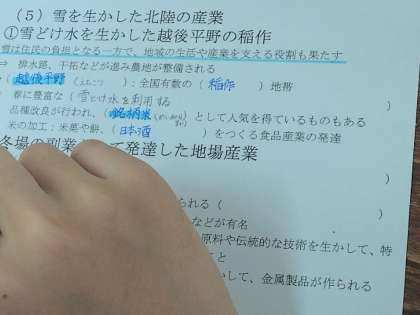 （5）雪を生かした北陸の産業
①雪どけ水を生かした越後平野の稲作
雪は住民の負担となる一方で、地域の生活や産業を支える役割も果たす
⇒ 排水路、干拓などが進み農地が整備される
（越後平野（えちごへいや））：全国有数の（稲作）地帯
春に豊富な（雪どけ水を利用する ）
品種改良が行われ、（銘柄米（めいがらまい））として人気を得ているものもある
米の加工：米菓や餅、（日本酒）をつくる食品産業の発達
冬場の副業 て発達した地場産業
）
られる（ ）
などが有名
原料や伝統的な技術を生かして、特
こと
かして、金属製品が作られる